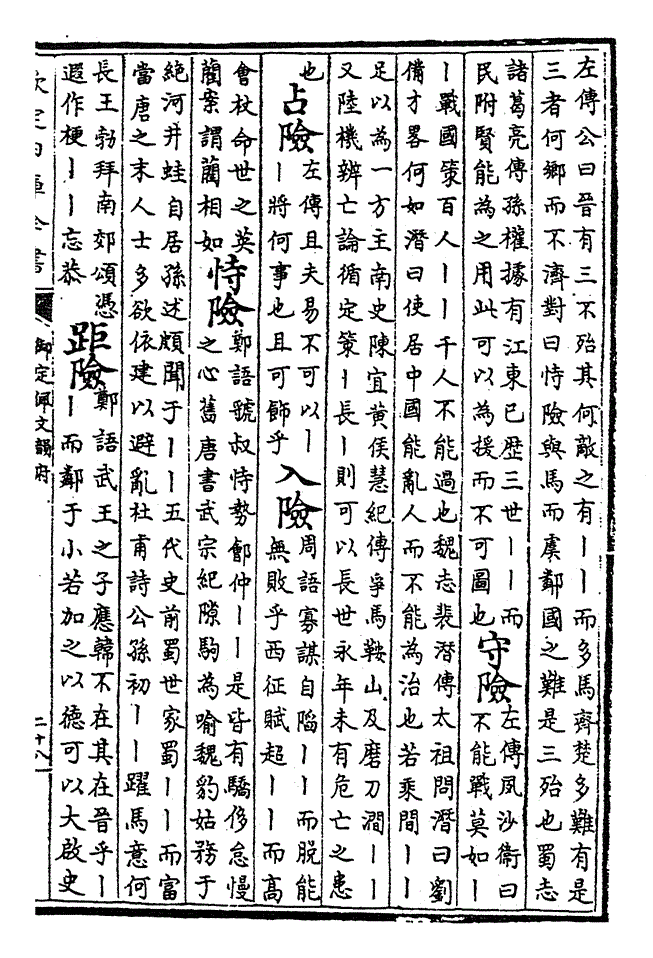 左傳公曰晉有三不殆其何敵之有丨丨而多馬齊楚多難有是
三者何鄉而不濟對曰恃險與馬而虞鄰國之難是三殆也蜀志
諸葛亮傳孫權據有江東已歴三世丨丨而
民附賢能為之用此可以為援而不可圖也
守險
左傳夙沙衞曰
不能戰莫如丨
丨戰國策百人丨丨千人不能過也魏志裴潛傳太祖問潛曰劉
備才畧何如潛曰使居中國能亂人而不能為治也若乘間丨丨
足以為一方主南史陳宜黃侯慧紀傳爭馬鞍山及磨刀澗丨丨
又陸機辨亡論循定策丨長丨則可以長世永年未有危亡之患
也
占險
左傳且夫易不可以丨
丨將何事也且可飾乎
入險
周語寡謀自陷丨丨而脫能
無敗乎西征賦超丨丨而高
會杖命世之英
藺案謂藺相如
恃險
鄭語虢叔恃勢鄶仲丨丨是皆有驕侈怠慢
之心舊唐書武宗紀隙駒為喻魏豹姑務于
絶河井蛙自居孫述頗聞于丨丨五代史前蜀世家蜀丨丨而富
當唐之末人士多欲依建以避亂杜甫詩公孫初丨丨躍馬意何
長王勃拜南郊頌憑
遐作梗丨丨忘恭
距險
鄭語武王之子應韓不在其在晉乎丨
丨而鄰于小若加之以德可以大啟史
欽定四庫全書
御定佩文韻府
二十八